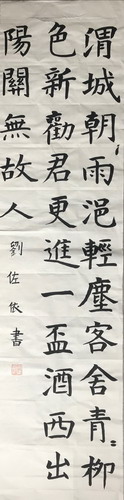 渭城朝雨浥輕塵客舍青〻柳
色新勸君更進一盃酒西出
陽關無故人
劉佐依書